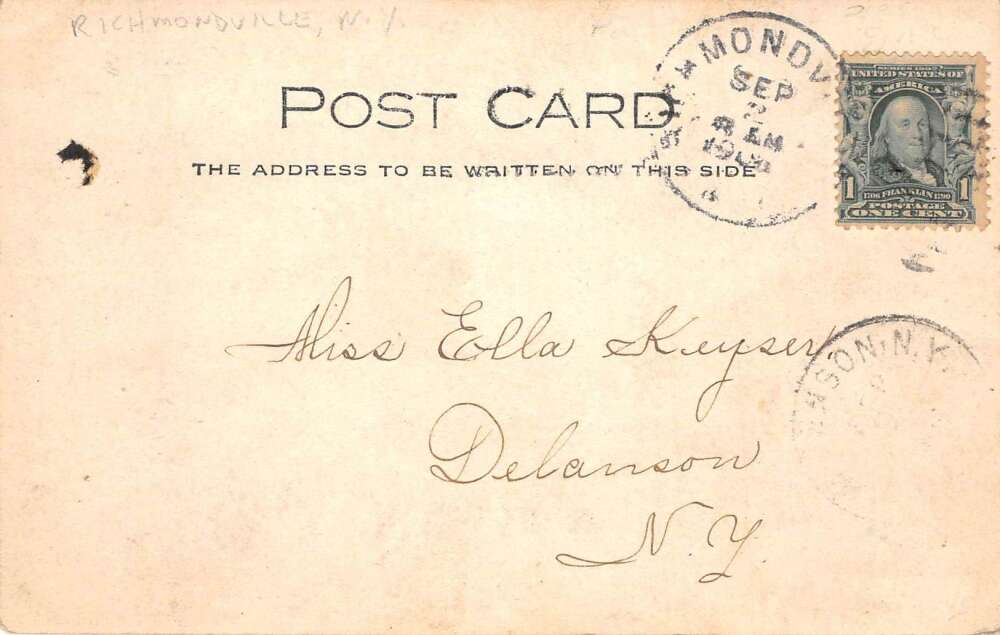 RICHMONDVILLE, N.Y.
POST CARD
THE ADDRESS TO BE WRITTEN ON THIS SIDE
MONDV
SEP
2
8 AM
SERIES 1902
UNITED STATES OF
AMERICA
1 1706 FRANKLIN 1790 1
POSTAGE
ONE CENT
Miss Ella Keyser
Delanson
N.Y.
NSON, N.Y.